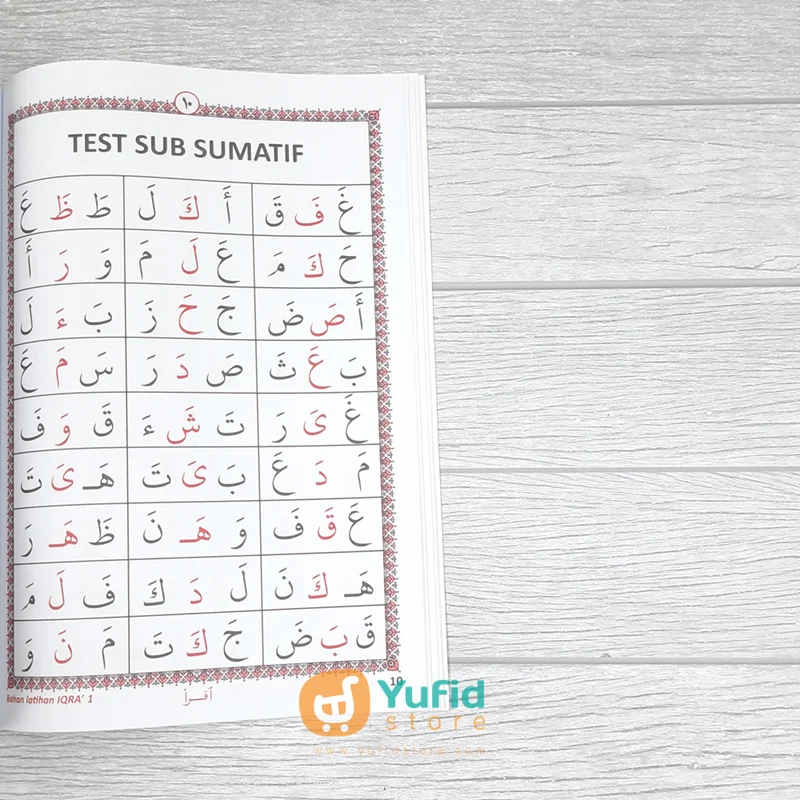 ١٠
TEST SUB SUMATIF
غَ فَ قَ أَ كَ لَ طَ ظَ عَ
حَ كَ مَ عَ لَ مَ وَ رَ أَ
أَ صَ ضَ جَ حَ زَ بَ ءَ لَ
بَ عَ ثَ صَ دَ رَ سَ مَ عَ
غَ یَ رَ تَ شَ ءَ قَ وَ فَ
مَ دَ عَ بَ یَ تَ هَـ یَ تَ
عَ قَ فَ وَ هَـ نَ ظَ هَـ رَ
هَـ كَ نَ لَ دَ كَ فَ لَ مَ
قَ بَ ضَ جَ كَ تَ مَ نَ وَ
10
Bahan latihan IQRA' 1
اَقرأْ
Yufid
store
www.yufidstore.com